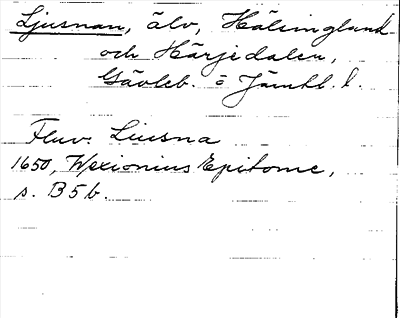 Ljusnan, älv, Hälsingland
och Härjedalen,
Gävleb. o Jämtl. l.
Fluv. Liusna
1650, Wexionius Epitome,
s. B5b.